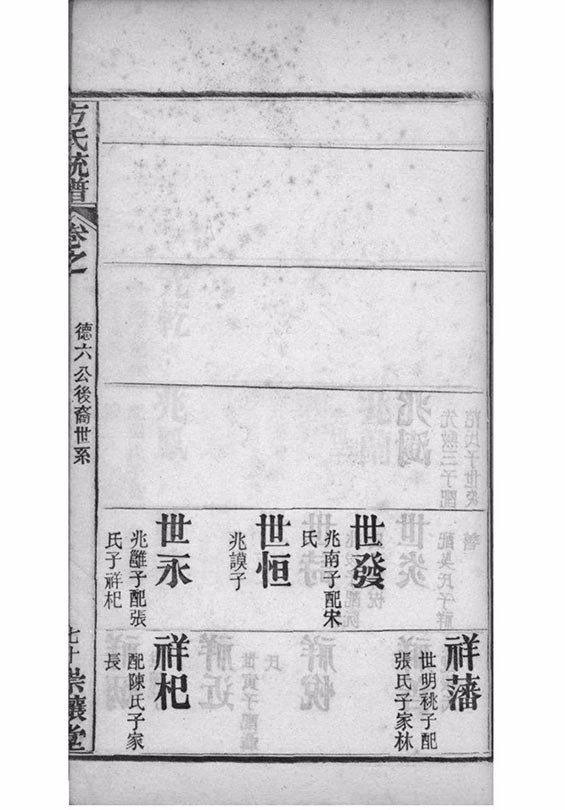 世發
兆南子配宋
氏
世恒
兆謨子
世永
兆雝子配張
氏子祥杞
祥藩
世明祧子配
張氏子家林
祥杞
配陳氏子家
長
方氏統譜
卷之
德六公後裔世系
七十
崇讓堂